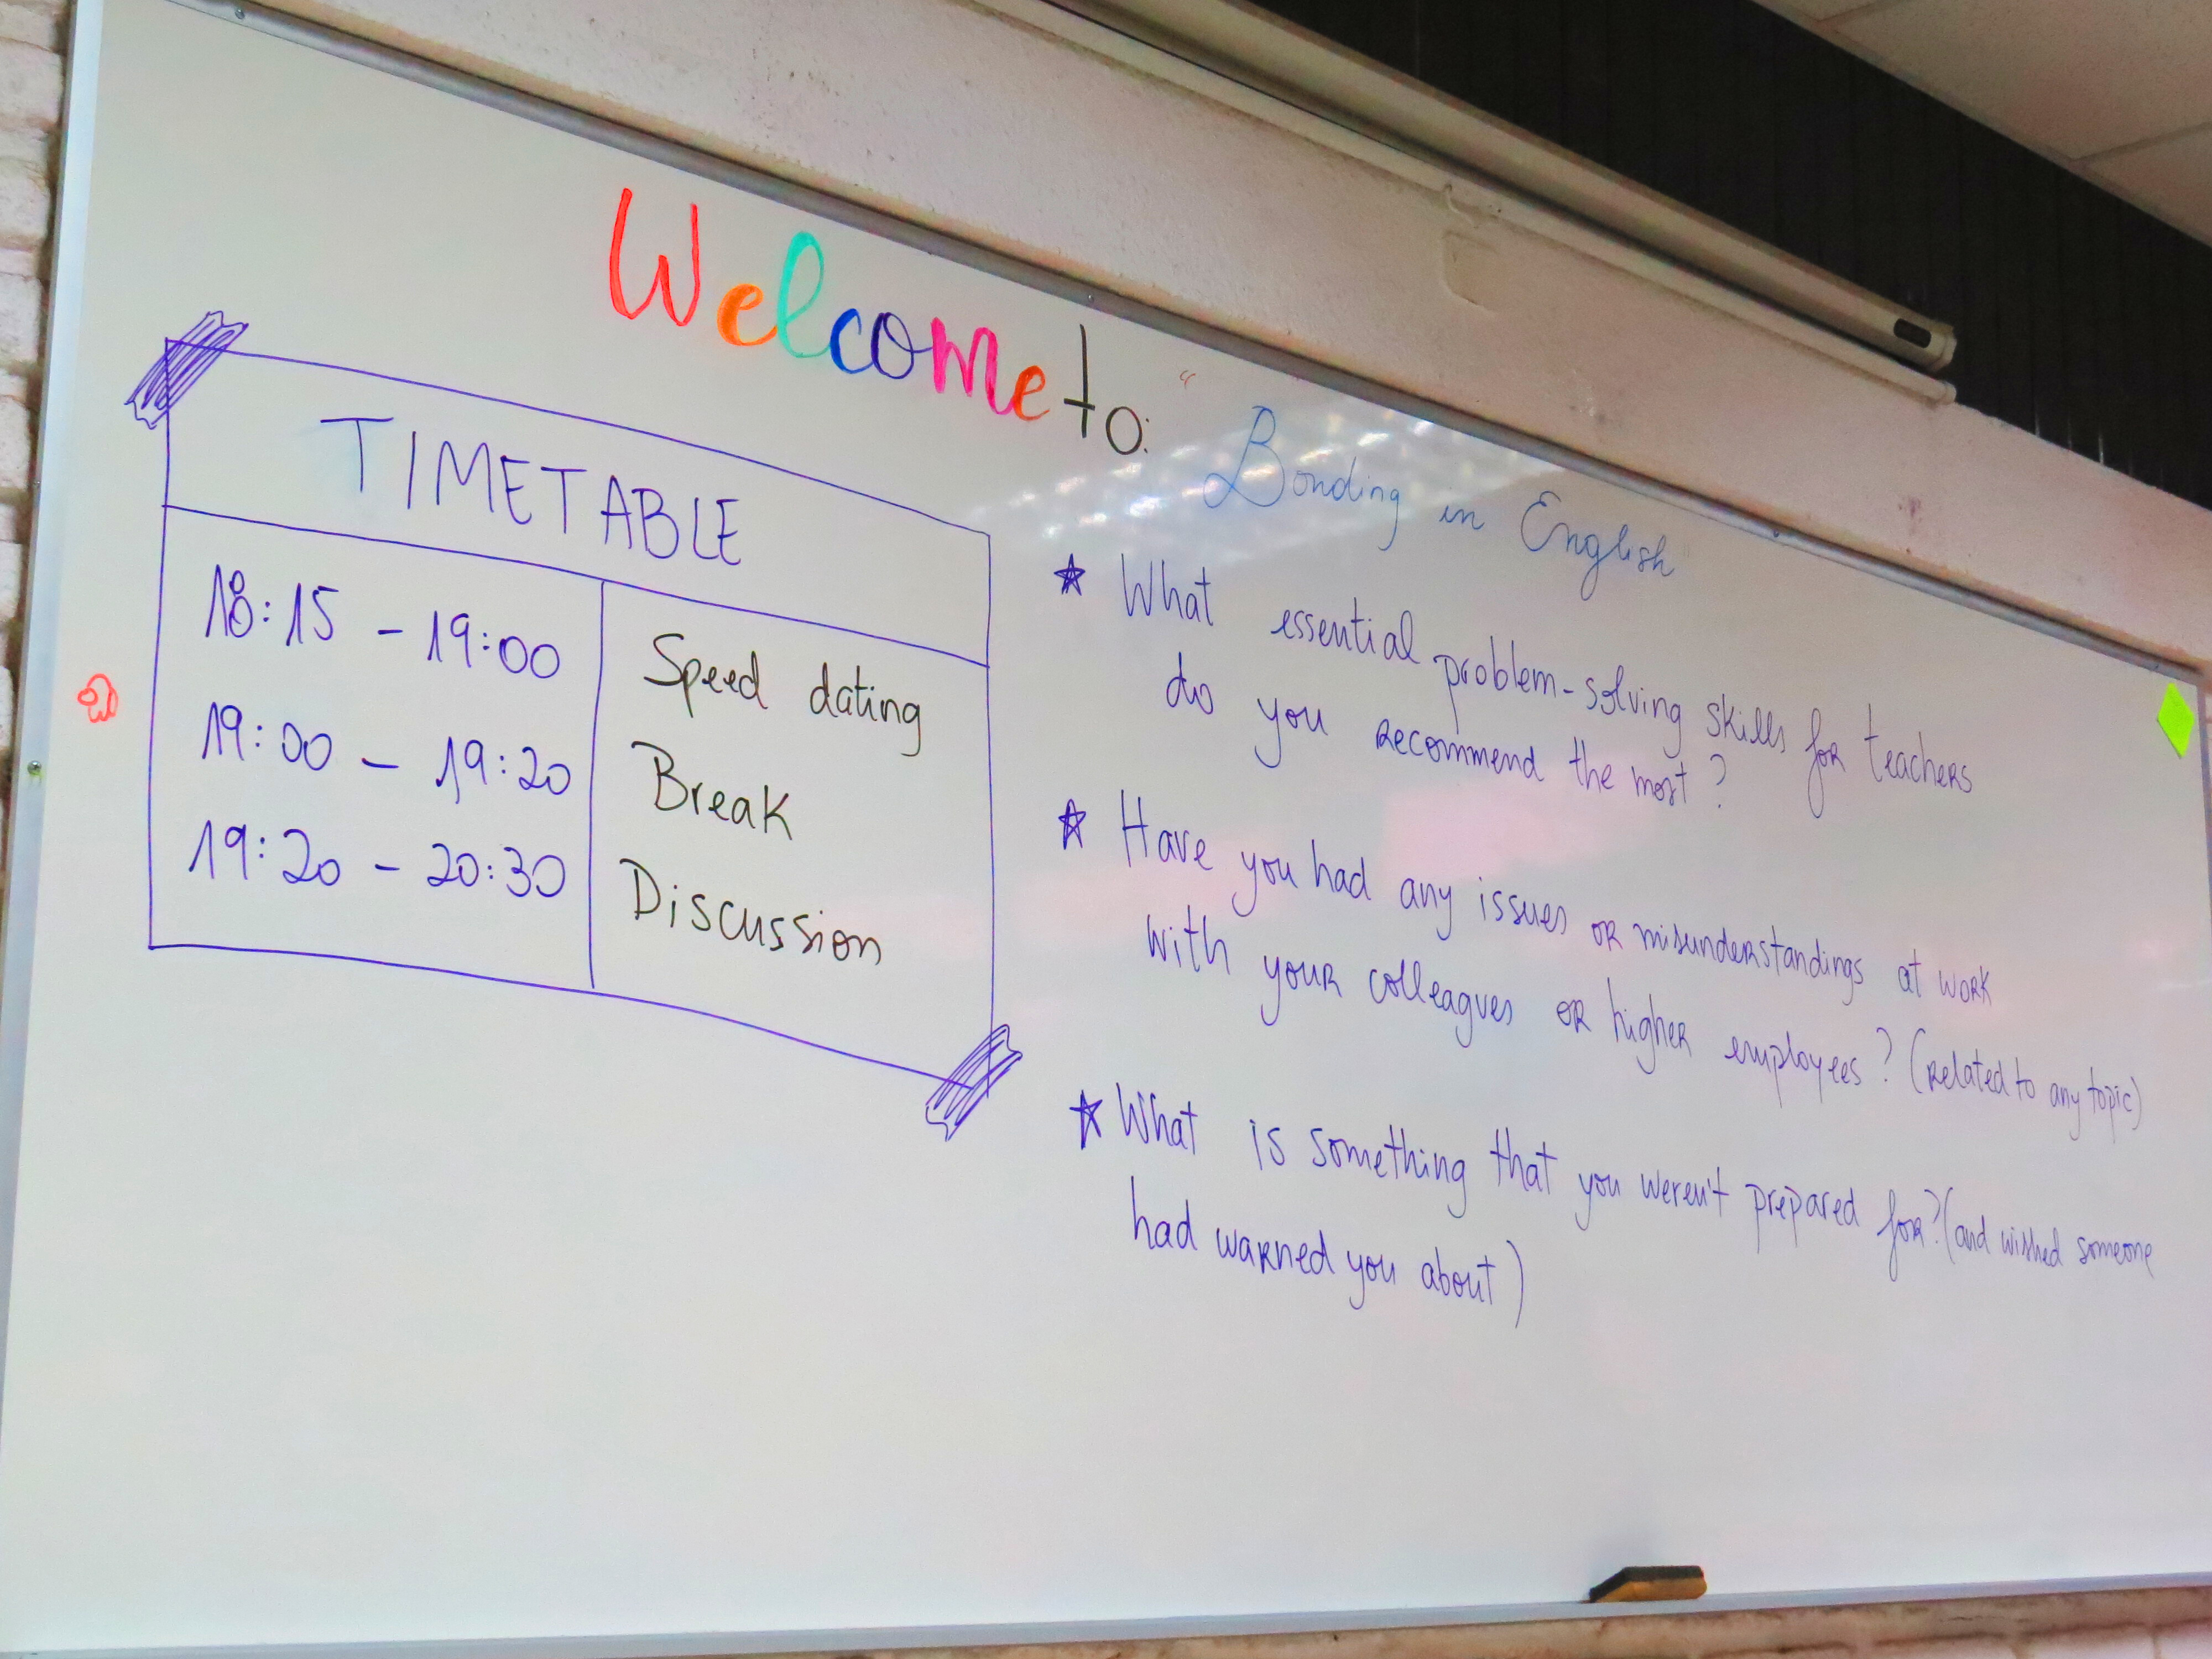 Welcome to:
"Bonding in English"
TIMETABLE
18:15 - 19:00 Speed dating
19:00 - 19:20 Break
19:20 - 20:30 Discussion
What essential problem-solving skills for teachers
do you recommend the most?
Have you had any issues or misunderstandings at work
with your colleagues or higher employees? (related to any topic)
What is something that you weren't prepared for? (and wished someone
had warned you about)